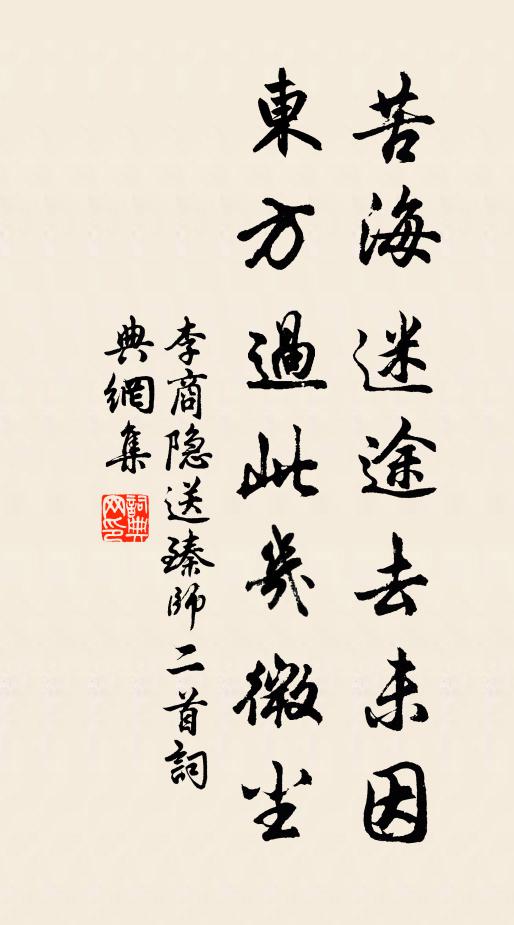 苦海迷途去未因
東方過此幾微尘
李商隐送臻師二首詞
典網集
詞典
网印